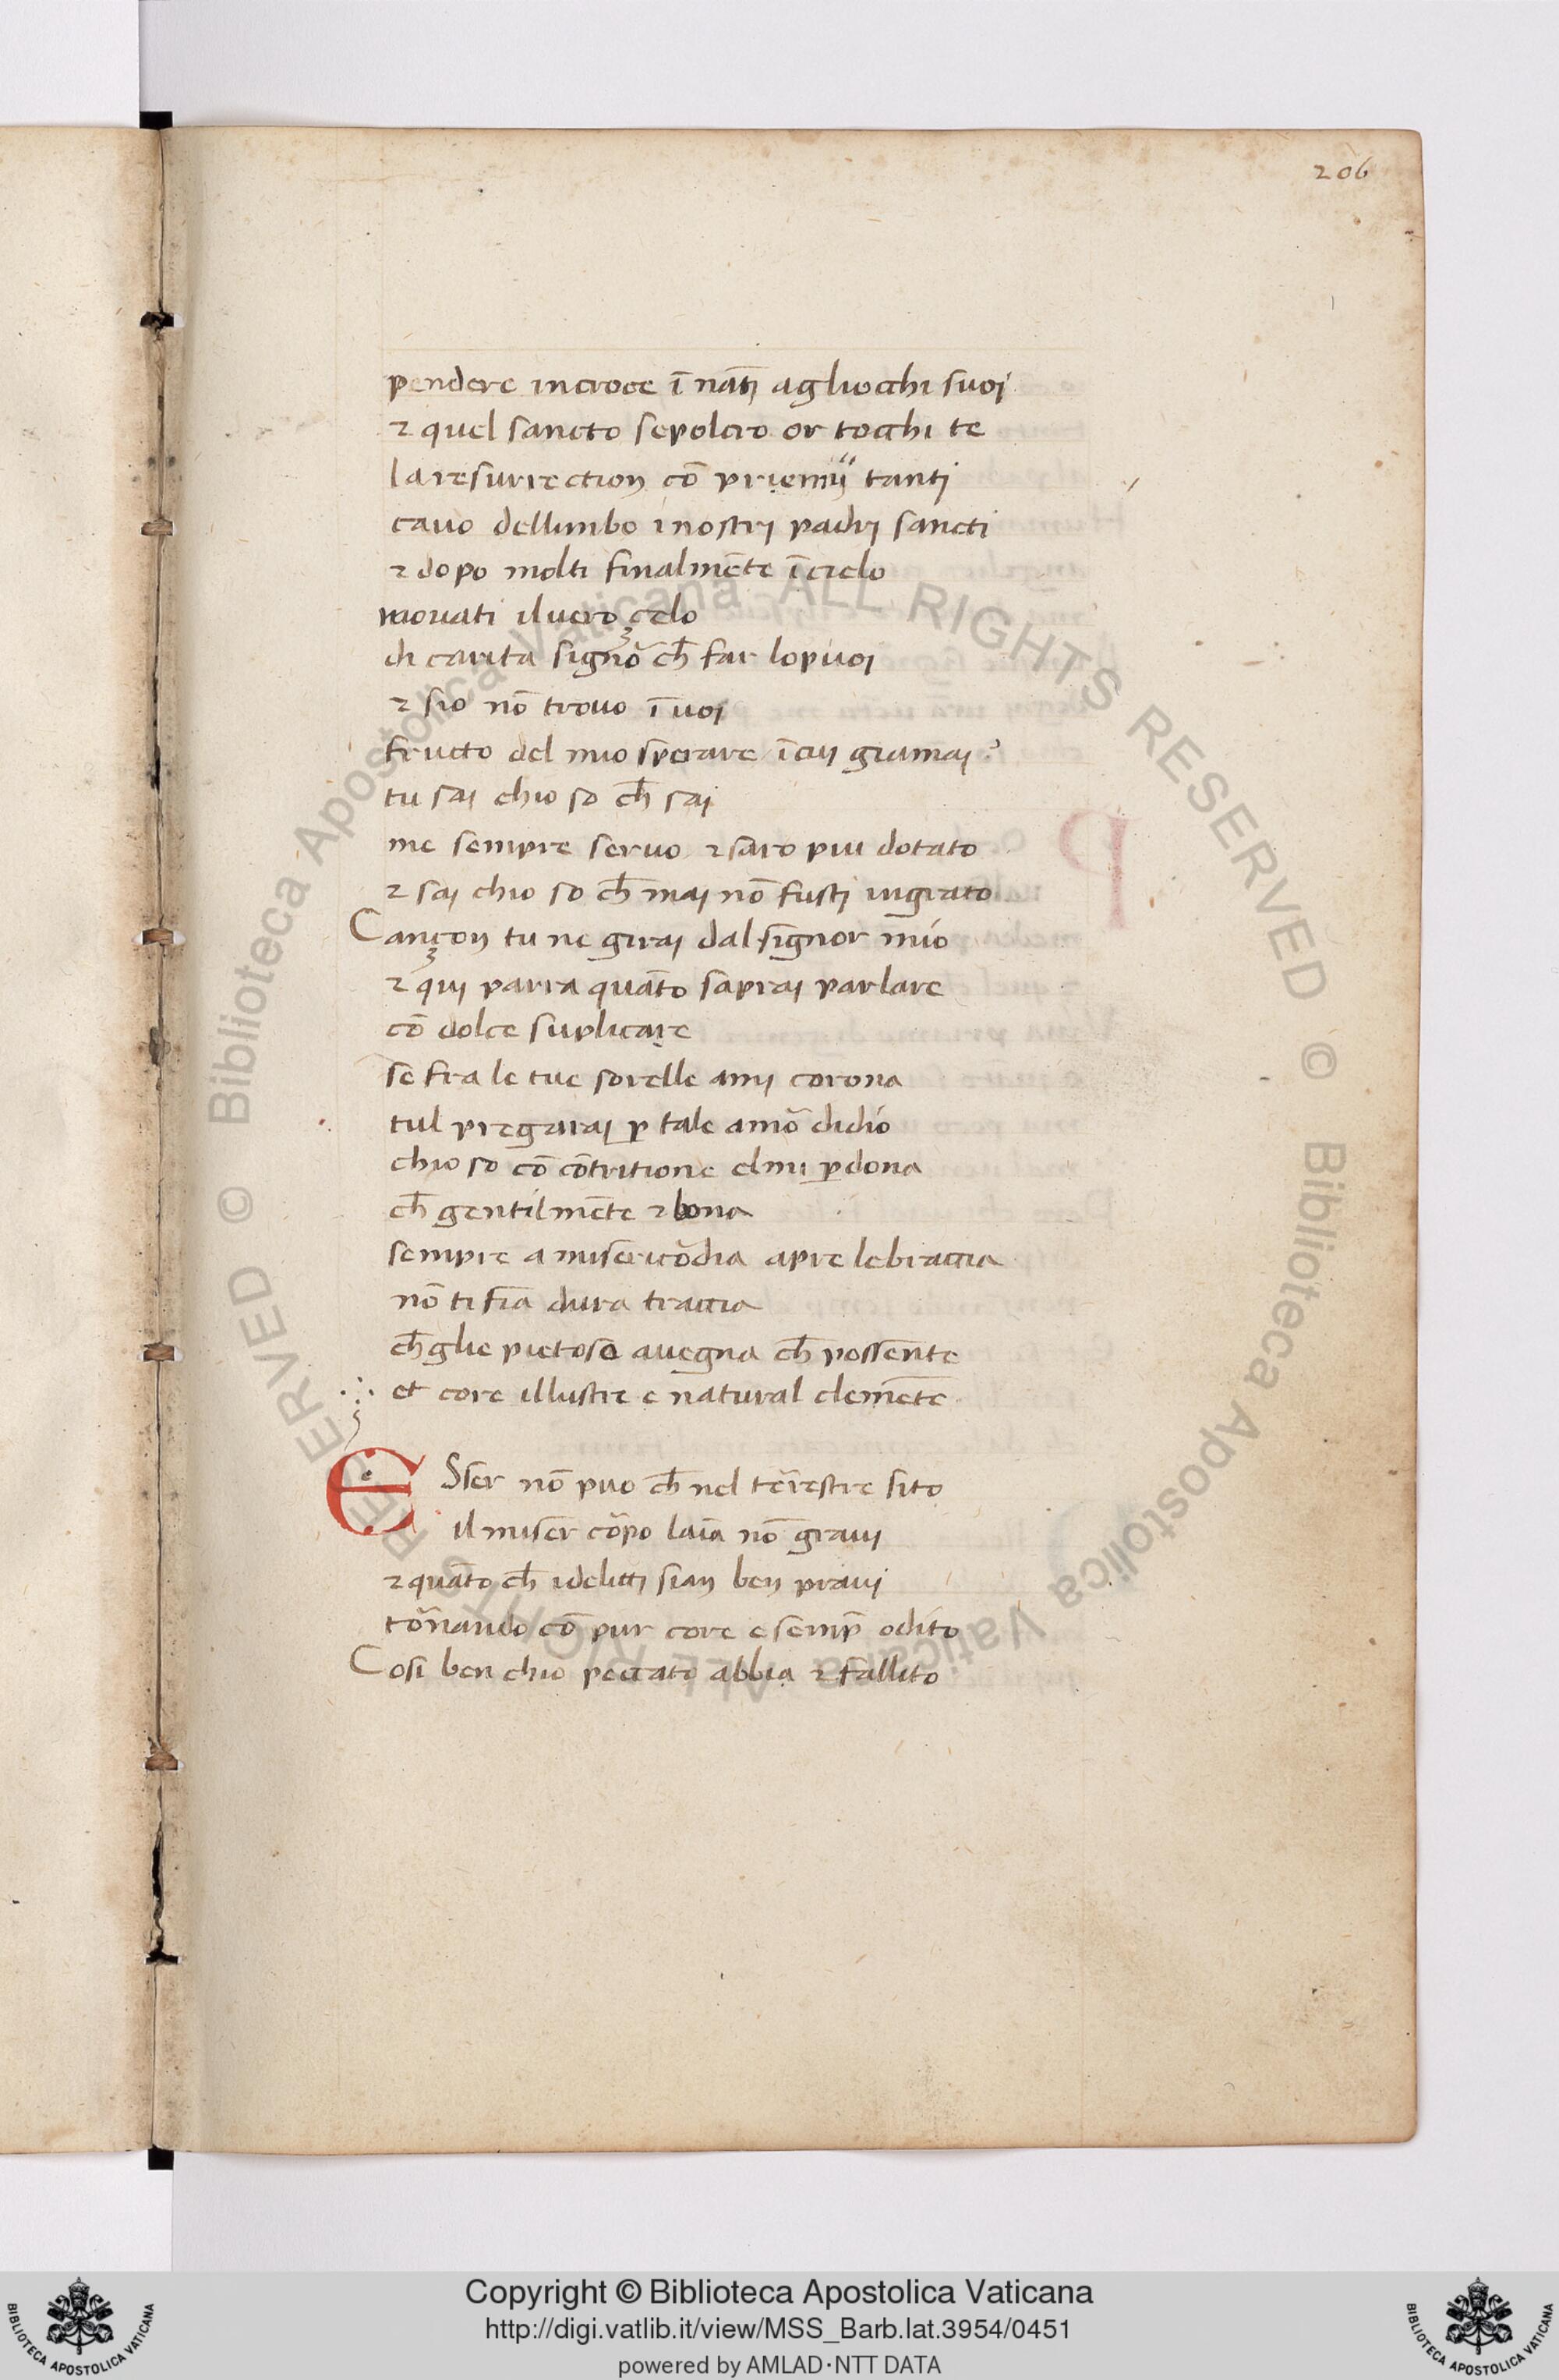 206
pendere incroce ī nāti agliocchi suoi
⁊ quel sancto sepolcro or tocchi te
la resurrection cō priemij tanti
cauo dellimbo inostri padri sancti
⁊ dopo molti finalmēte īcielo
mouati iluero çelo
di carita signō ch̄ far lopuoi
⁊ sio nō trouo ī uoi
fructo del mio sperare īcui giamai?
tu sai chio so ch̄ sai
me sempre seruo ⁊ saro piu dotato
⁊ sai chio so ch̄ mai nō fusti ingrato
Cançon tu ne girai dal signor mio
⁊ qui parra quāto saprai parlare
cō dolce suplicare
se fra le tue sorelle amj corona
tul pregarai ꝑ tale amō didio
chio so cō cōtritione elmi ꝑdona
ch̄ gentilmēte ⁊ bona
sempre a misericōdia apre lebraccia
nō ti fia dura traccia
ch̄ glie pietoso auegna ch̄ possente
et core illustre e natural clemēte
ESser nō puo ch̄ nel terrestre sito
il miser cōpo laīa nō graui
⁊ quāto ch̄ idelitti sian ben praui
tōnando cō pur core e semp̄ odito
Cosi ben chio peccato abbia ⁊ fallito
© Biblioteca Apostolica Vaticana ALL RIGHTS RESERVED © Biblioteca Apostolica Vaticana ALL RIGHTS RESERVED
Copyright © Biblioteca Apostolica Vaticana
http://digi.vatlib.it/view/MSS_Barb.lat.3954/0451
powered by AMLAD·NTT DATA
BIBLIOTECA APOSTOLICA VATICANA
BIBLIOTECA APOSTOLICA VATICANA